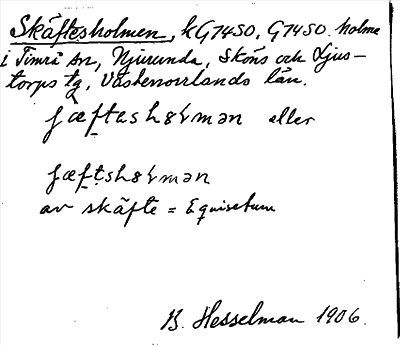 Skäftesholmen, kG74SO, G74SO. holme
i Timrå sn, Njurunda, Sköns och Ljus-
torps tg, Västernorrlands län.
eller
av skäfte = Equisetum
B. Hesselman 1906.